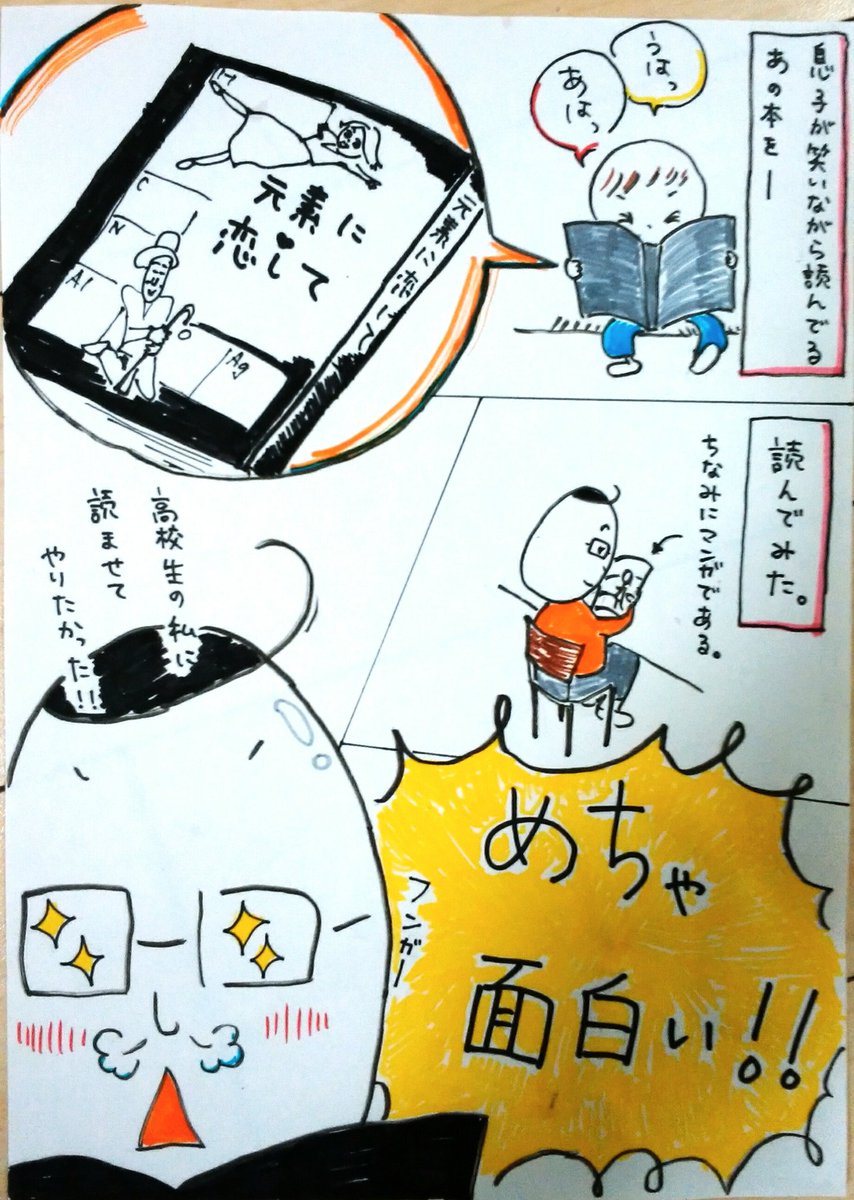 息子が笑いながら読んでる
あの本をー
うはっ
あはっ
元素に
恋して
元素に恋して
H
C
N
Al
Ag
読んでみた。
ちなみにマンガである。
めちゃ
面白い!!
フンガー
高校生の私に
読ませて
やりたかった!!